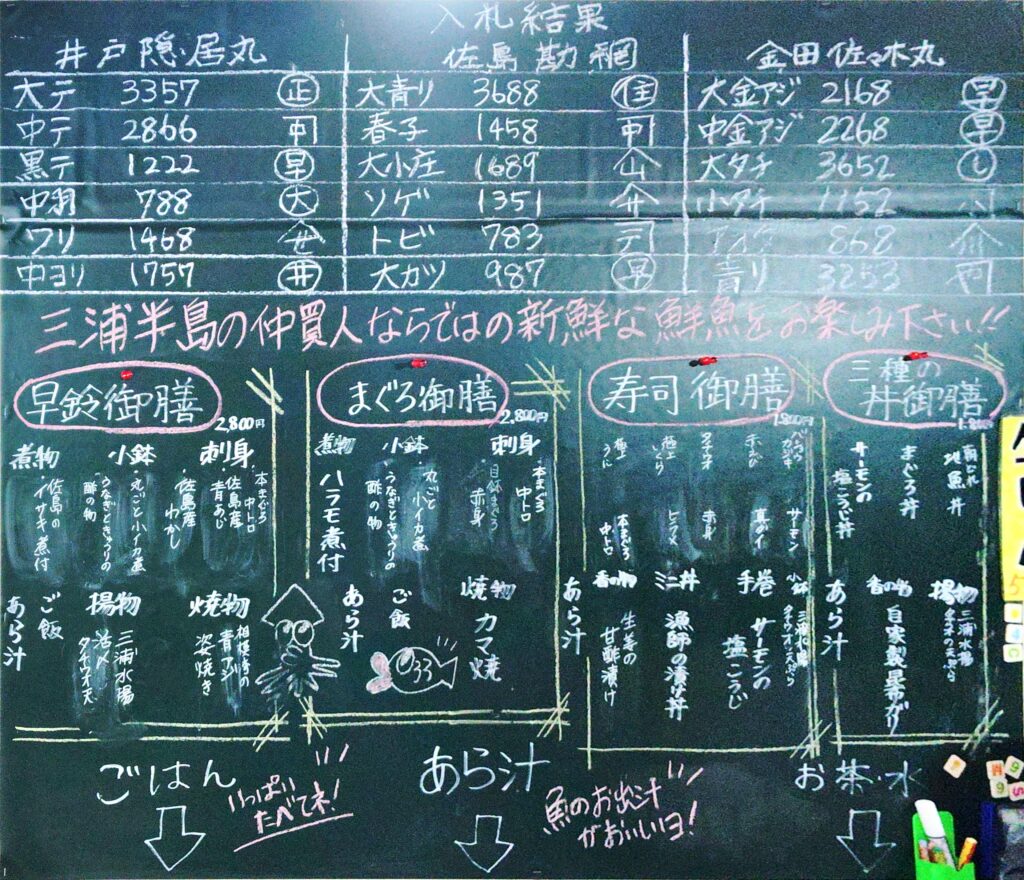 入札結果
井戸隠居丸 佐島勘網 金田佐々木丸
大テ 3357 正 大青リ 3688 住 大金アジ 2168 早
中テ 2866 春子 1458 中金アジ 2268 早
黒テ 1222 早 大小庄 1689 山 大タチ 3652 し
中羽 788 大 ソゲ 1351 小タチ 1152
ワリ 1468 トビ 783 アオタ 868
中ヨリ 1757 井 大カツ 987 早 青リ 3253
三浦半島の仲買人ならではの新鮮な鮮魚をお楽しみ下さい!!
早鈴御膳
2,800円
刺身
本まぐろ
中トロ
佐島産
青あじ
佐島産
わかし
小鉢
丸ごと小イカ煮
うなぎときゅうりの
酢の物
煮物
佐島の
イサキ煮付
焼物
相模湾の
青アジ
姿焼き
揚物
三浦水陽
活〆
タチウオ天
ご飯
あら汁
まぐろ御膳
2,800円
刺身
本まぐろ
中トロ
赤身
小鉢
丸ごと
小イカ煮
うなぎときゅうりの
酢の物
煮物
ハラモ煮付
焼物
カマ焼
ご飯
あら汁
寿司御膳
1,800円
サーモン
真ダイ
赤身
ヒラメ
極上
いくら
本まぐろ
中トロ
極上
うに
小鉢
手巻
サーモンの
塩こうじ
ミニ丼
漁師の漬け丼
香の物
生姜の
甘酢漬け
あら汁
三種の
丼御膳
地魚丼
まぐろ丼
サーモンの
塩こうじ丼
揚物
三浦水陽
香の物
自家製昆布ガリ
あら汁
ごはん
いっぱい
たべてネ!
あら汁
魚のお出汁
がおいしいヨ!
お茶・水